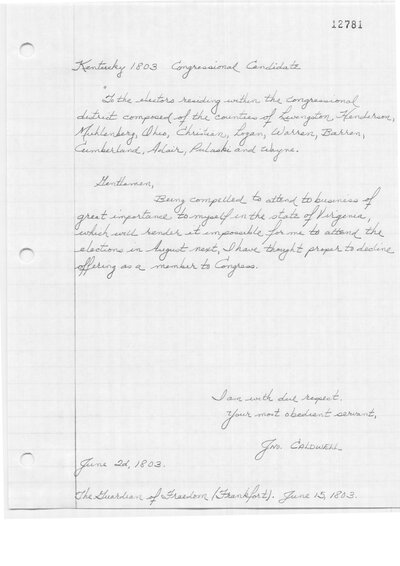 12781
Kentucky 1803 Congressional Candidate
"To the electors residing within the congressional
district composed of the counties of Livingston, Henderson,
Muhlenberg, Ohio, Christian, Logan, Warren, Barren,
Cumberland, Adair, Pulaski and Wayne.
Gentlemen,
Being compelled to attend to business of
great importance to myself in the state of Virginia,
which will render it impossible for me to attend the
elections in August next, I have thought proper to decline
offering as a member to Congress.
I am with due respect.
Your most obedient servant,
Jno. CALDWELL
June 2d, 1803.
The Guardian of Freedom (Frankfort). June 15, 1803.